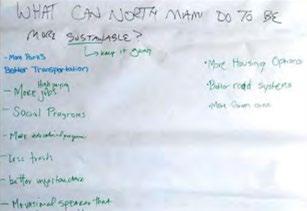 WHAT CAN NORTH MIAMI DO TO BE
MORE SUSTAINABLE?
↳ keep it green
• More Parks
Better Transportation
High paying
- More jobs
- Social Programs
- More educational programs
- Less trash
- better
- Motivational speaker that
• More Housing Options
• Better road systems
• More Green area